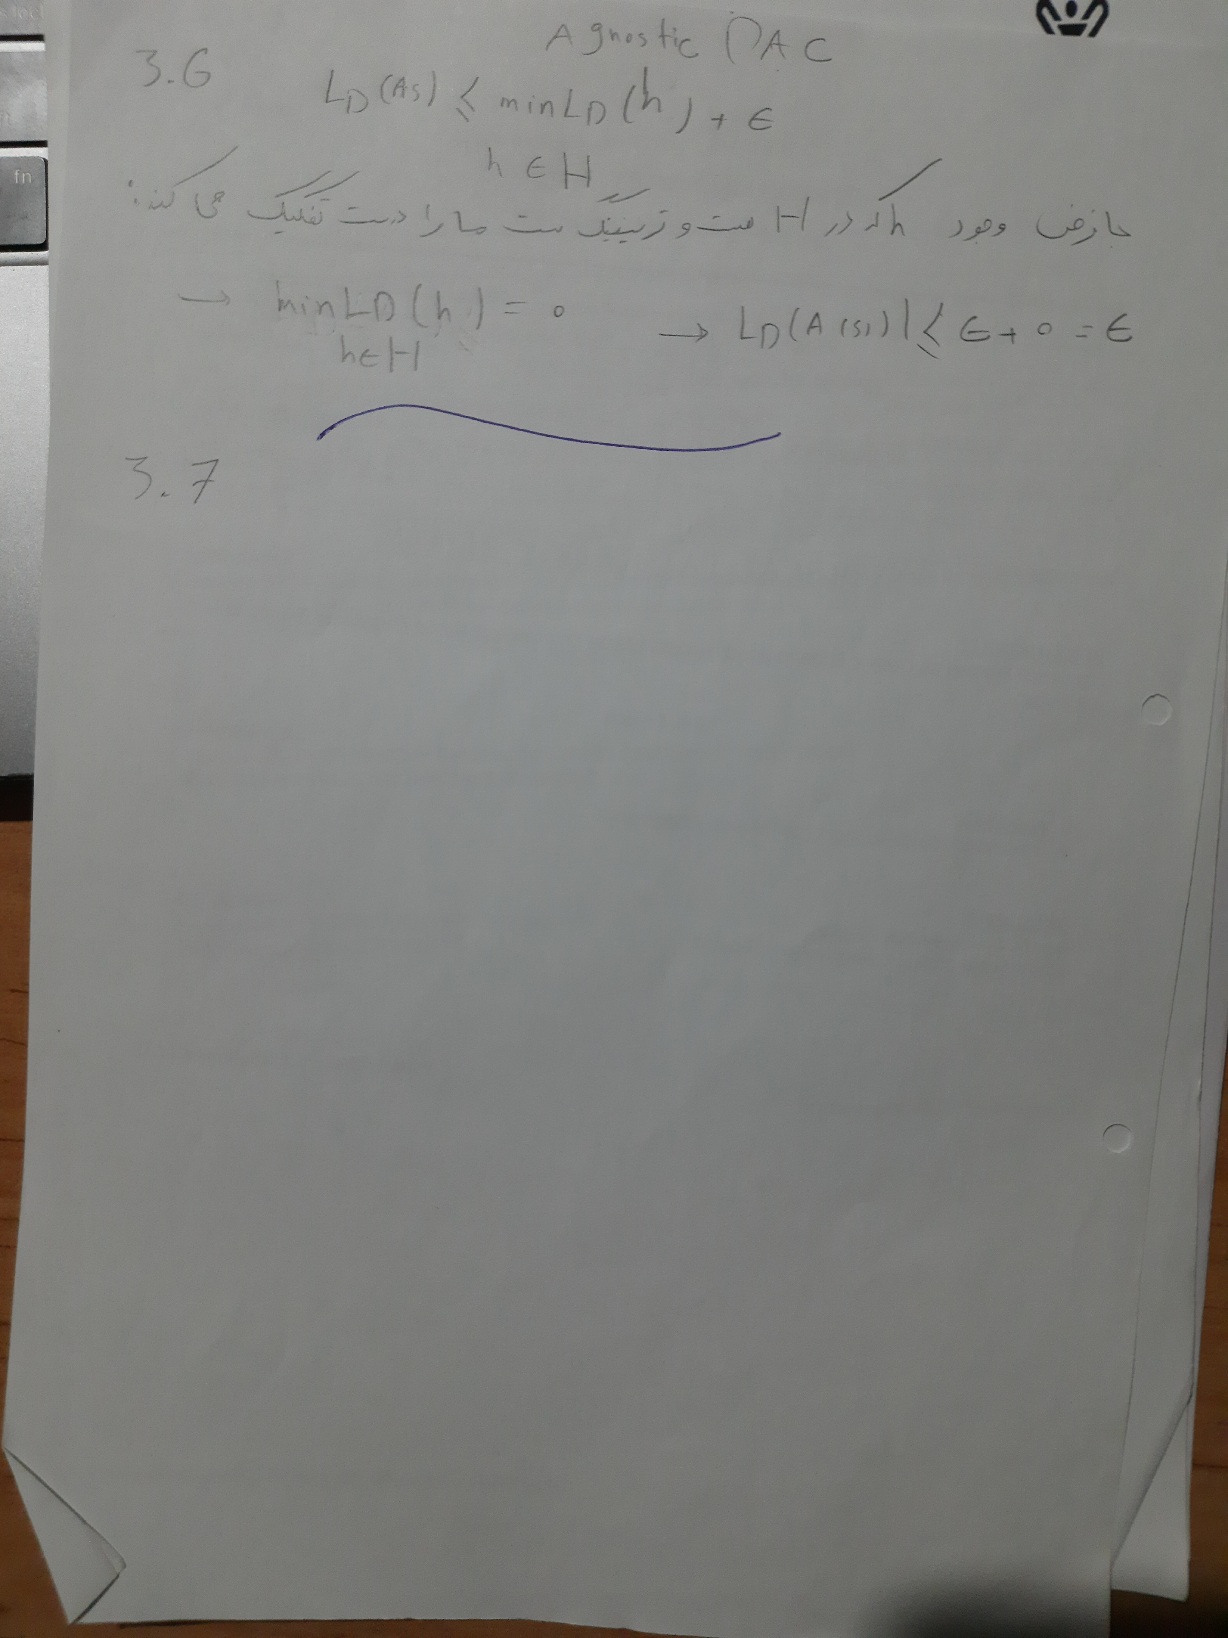 Agnostic PAC
3.6
LD(As) ≤ min LD(h) + ε
h ∈ H
با فرض وجود h که در H هست و ترینینگ ست ما را درست تفکیک می کند:
→ min LD(h) = 0 → LD(A(s)) ≤ ε + 0 = ε
h∈H
3.7
fn